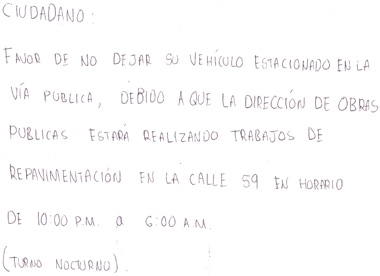 CIUDADANO:
FAVOR DE NO DEJAR SU VEHÍCULO ESTACIONADO EN LA
VÍA PUBLICA, DEBIDO A QUE LA DIRECCIÓN DE OBRAS
PUBLICAS ESTARÁ REALIZANDO TRABAJOS DE
REPAVIMENTACIÓN EN LA CALLE 59 EN HORARIO
DE 10:00 P.M. a 6:00 A.M.
(TURNO NOCTURNO).